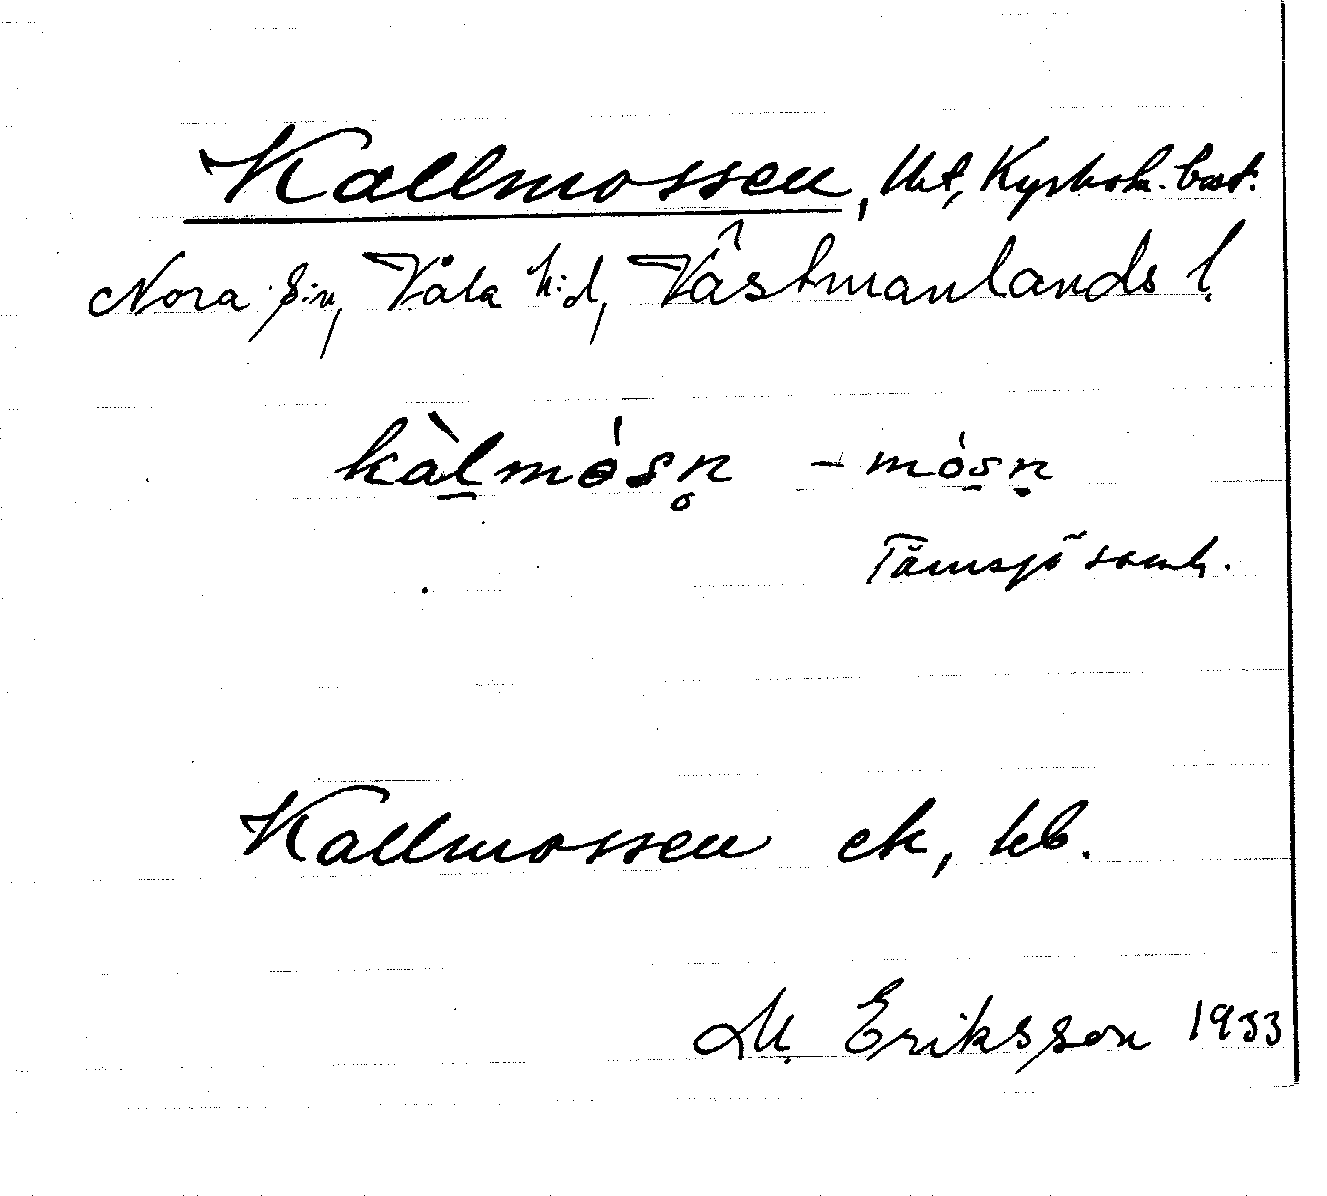 Kallmossen, Utt, Kyrkok. bost.
Nora s:n, Våla h:d, Västmanlands l.
kàlmósn̥ - mósn̥
Tärnsjö samh.
Kallmossen ek, kb.
M. Eriksson 1933